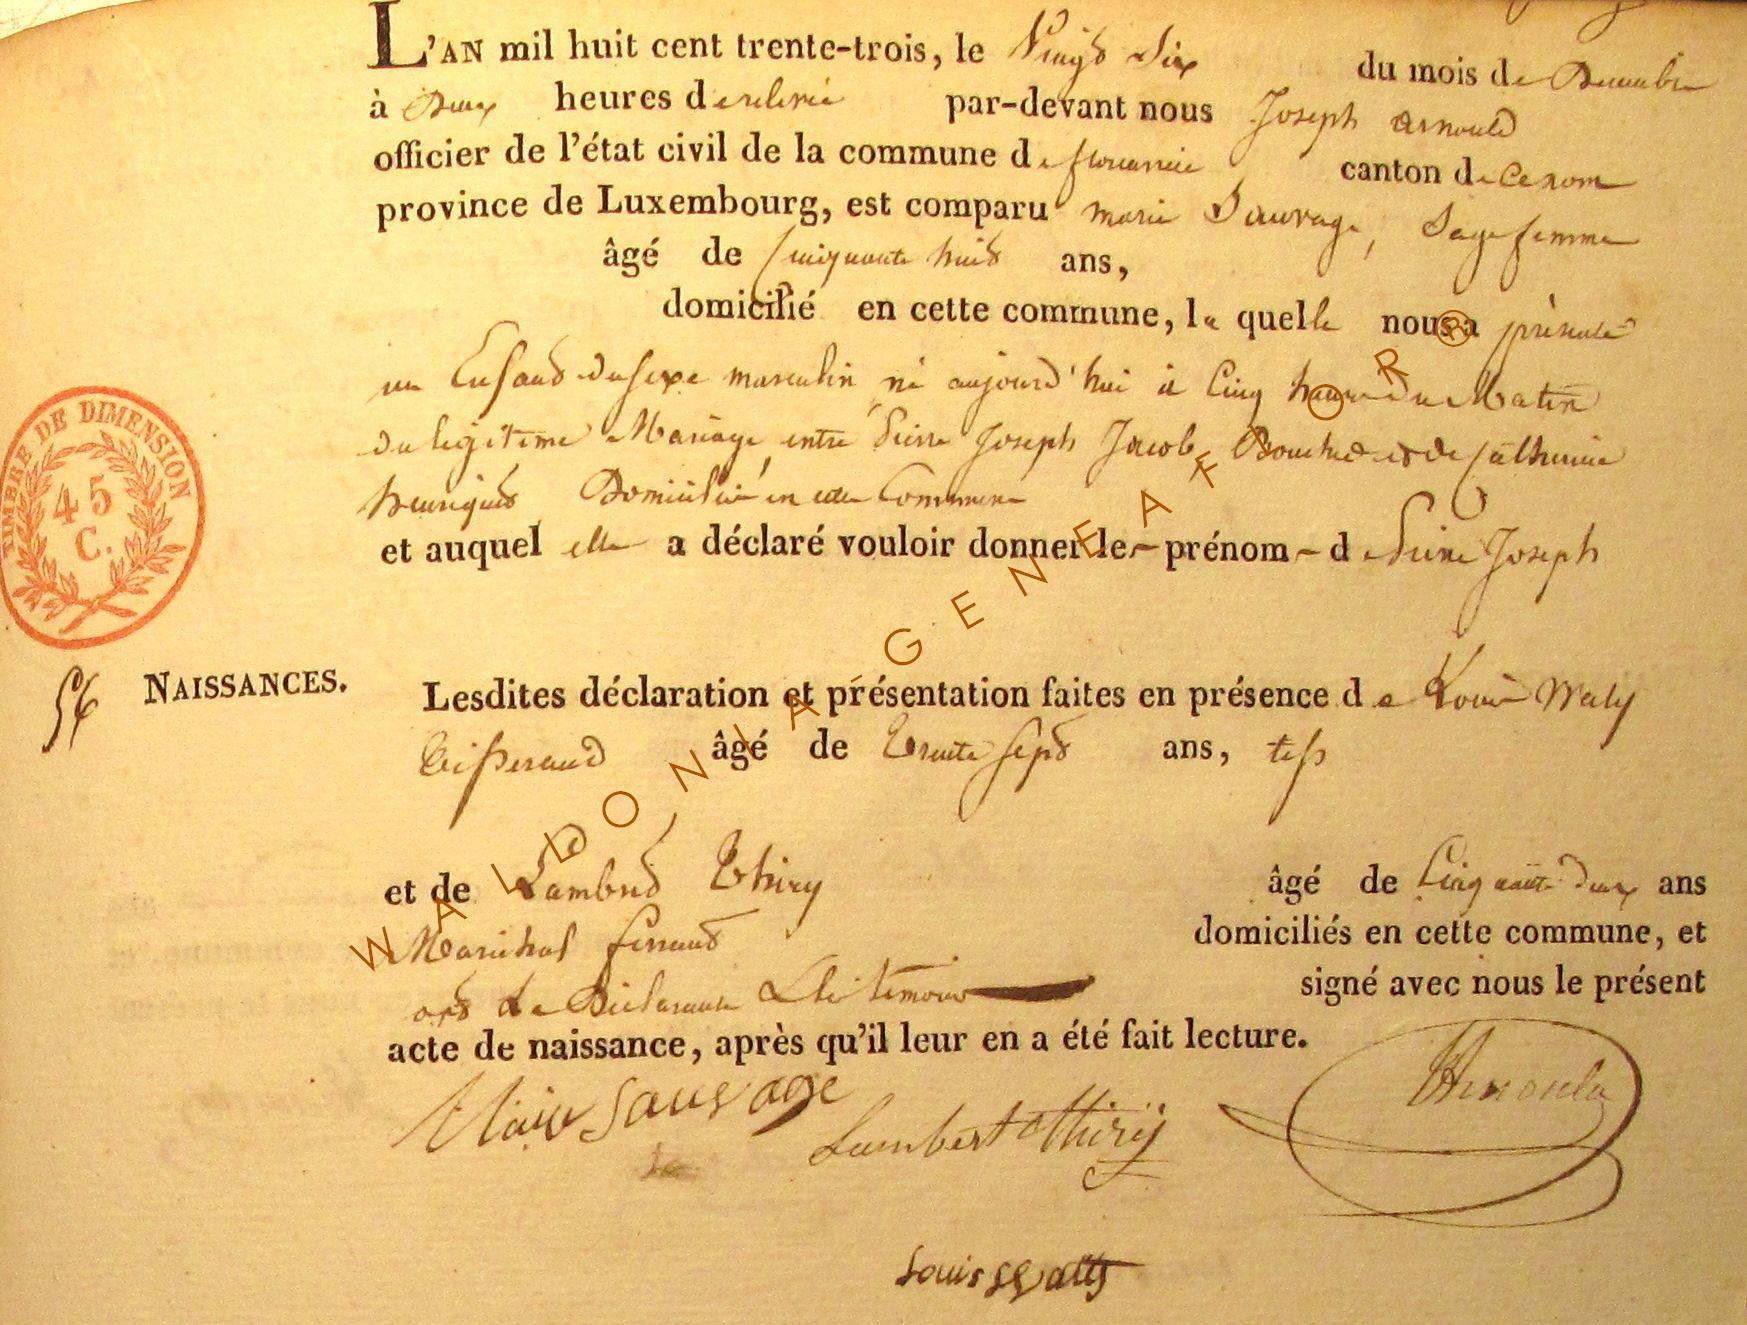 L'AN mil huit cent trente-trois, le Vingt Six du mois de Decembre
à Deux heures de relevée par-devant nous Joseph Arnould
officier de l'état civil de la commune de canton de Ce nom
province de Luxembourg, est comparu marie Sauvage, Sage femme
âgé de Cinquante huit ans,
domicilié en cette commune, la quelle nous a présenté
un Enfant du sexe masculin né aujourd'hui à Cinq heures du Matin
du légitime Mariage entre Pierre Joseph Jacob, et de Catherine
Domiciliés en cette Commune
et auquel elle a déclaré vouloir donner les prénoms de Pierre Joseph
TIMBRE DE DIMENSION
45
C.
56 NAISSANCES.
Lesdites déclaration et présentation faites en présence de Louis Waly
Tisserand âgé de Trente Sept ans,
et de Lambert Thiry âgé de Cinquante deux ans
Maréchal ferrant domiciliés en cette commune, et
ont la Déclarante & les témoins signé avec nous le présent
acte de naissance, après qu'il leur en a été fait lecture.
Marie Sauvage
Lambert Thiry
Arnould
Louis
WALLONIA GÉNÉAFLOR ®